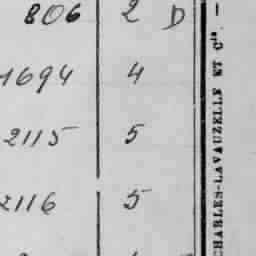 806 2 D
1694 4
2115 5
2116 5
CHARLES-LAVAUZELLE ET Cie. —